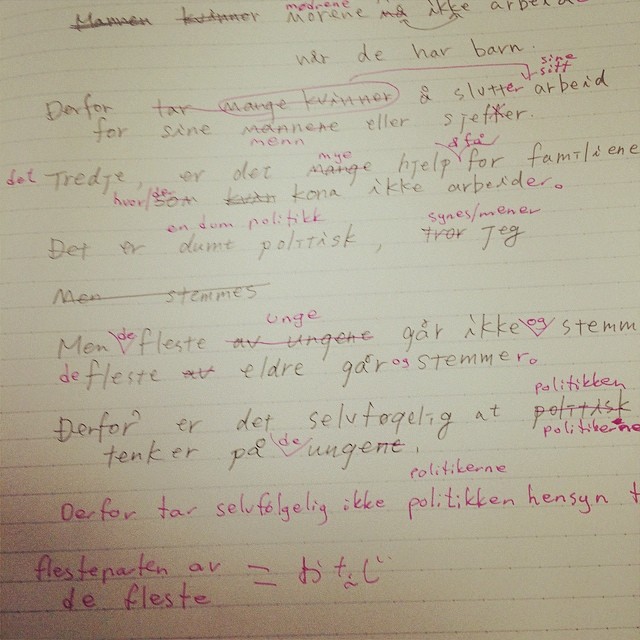 mødrene
Mannen kvinner mørene må ikke arbeid
når de har barn.
sine
sitt
Derfor tar mange kvinner å slutter arbeid
for sine mannene eller sjefker.
menn
mye å få
det Tredje, er det mange hjelp for familiene
hvor/der
som kvin kona ikke arbeider.
en dum politikk synes/mener
Det er dumt politisk, tror jeg
Men stemmes
unge
Men de fleste av ungene går ikke og stemm
de fleste av eldre går og stemmer.
politikken
Derfor er det selvføgelig at politisk
politikerne
tenker på de ungene.
politikerne
Derfor tar selvfølgelig ikke politikken hensyn t
flesteparten av = おたく
de fleste